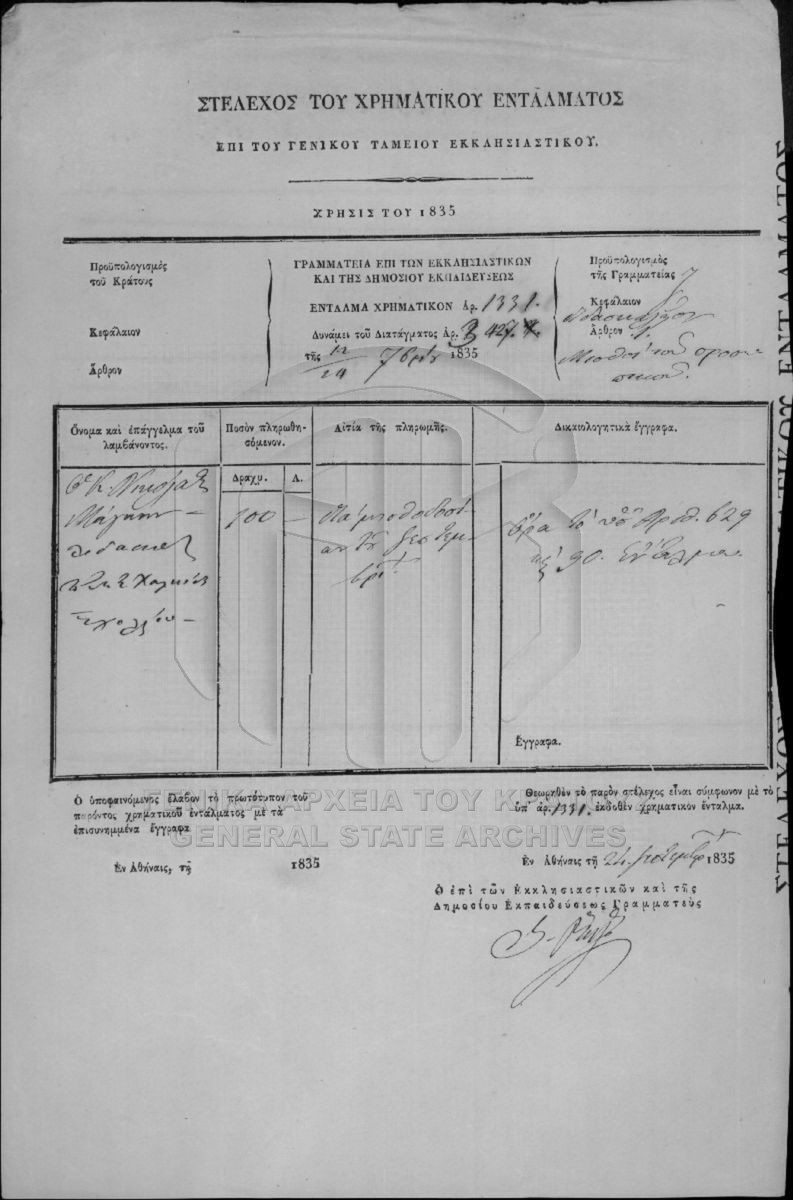 ΣΤΕΛΕΧΟΣ ΤΟΥ ΧΡΗΜΑΤΙΚΟΥ ΕΝΤΑΛΜΑΤΟΣ
ΕΠΙ ΤΟΥ ΓΕΝΙΚΟΥ ΤΑΜΕΙΟΥ ΕΚΚΛΗΣΙΑΣΤΙΚΟΥ.
ΧΡΗΣΙΣ ΤΟΥ 1835
Προϋπολογισμὸς
τοῦ Κράτους
Κεφάλαιον
Ἄρθρον
ΓΡΑΜΜΑΤΕΙΑ ΕΠΙ ΤΩΝ ΕΚΚΛΗΣΙΑΣΤΙΚΩΝ
ΚΑΙ ΤΗΣ ΔΗΜΟΣΙΟΥ ΕΚΠΑΙΔΕΥΣΕΩΣ
ΕΝΤΑΛΜΑ ΧΡΗΜΑΤΙΚΟΝ Ἀρ. 1331.
Δυνάμει τοῦ Διατάγματος Ἀρ. 427.
τῆς 12/24 7βρίου 1835
Προϋπολογισμὸς
τῆς Γραμματείας
Κεφάλαιον
Ἄρθρον 1.
Ὄνομα καὶ ἐπάγγελμα τοῦ
λαμβάνοντος.
Ποσὸν πληρωθη-
σόμενον.
Αἰτία τῆς πληρωμῆς.
Δικαιολογητικὰ ἔγγραφα.
Δραχμ. Λ.
100 —
διὰ μισθοδοσί-
αν τοῦ Σεπτεμ-
βρίου
ὅρα τὸ ὑπ' Ἀριθ. 629
90. Ἔνταλμα
Ἔγγραφα.
Ὁ ὑποφαινόμενος ἔλαβον τὸ πρωτότυπον τοῦ
παρόντος χρηματικοῦ ἐντάλματος μὲ τὰ
ἐπισυνημμένα ἔγγραφα
Ἐν Ἀθήναις, τῇ 1835
Θεωρηθὲν τὸ παρὸν στέλεχος εἶναι σύμφωνον μὲ τὸ
ὑπ' ἀρ. 1331. ἐκδοθὲν χρηματικὸν ἔνταλμα.
Ἐν Ἀθήναις τῇ 24 Σεπτεμβρ 1835
Ὁ ἐπὶ τῶν Ἐκκλησιαστικῶν καὶ τῆς
Δημοσίου Ἐκπαιδεύσεως Γραμματεὺς
ΓΕΝΙΚΑ ΑΡΧΕΙΑ ΤΟΥ ΚΡΑΤΟΥΣ
GENERAL STATE ARCHIVES